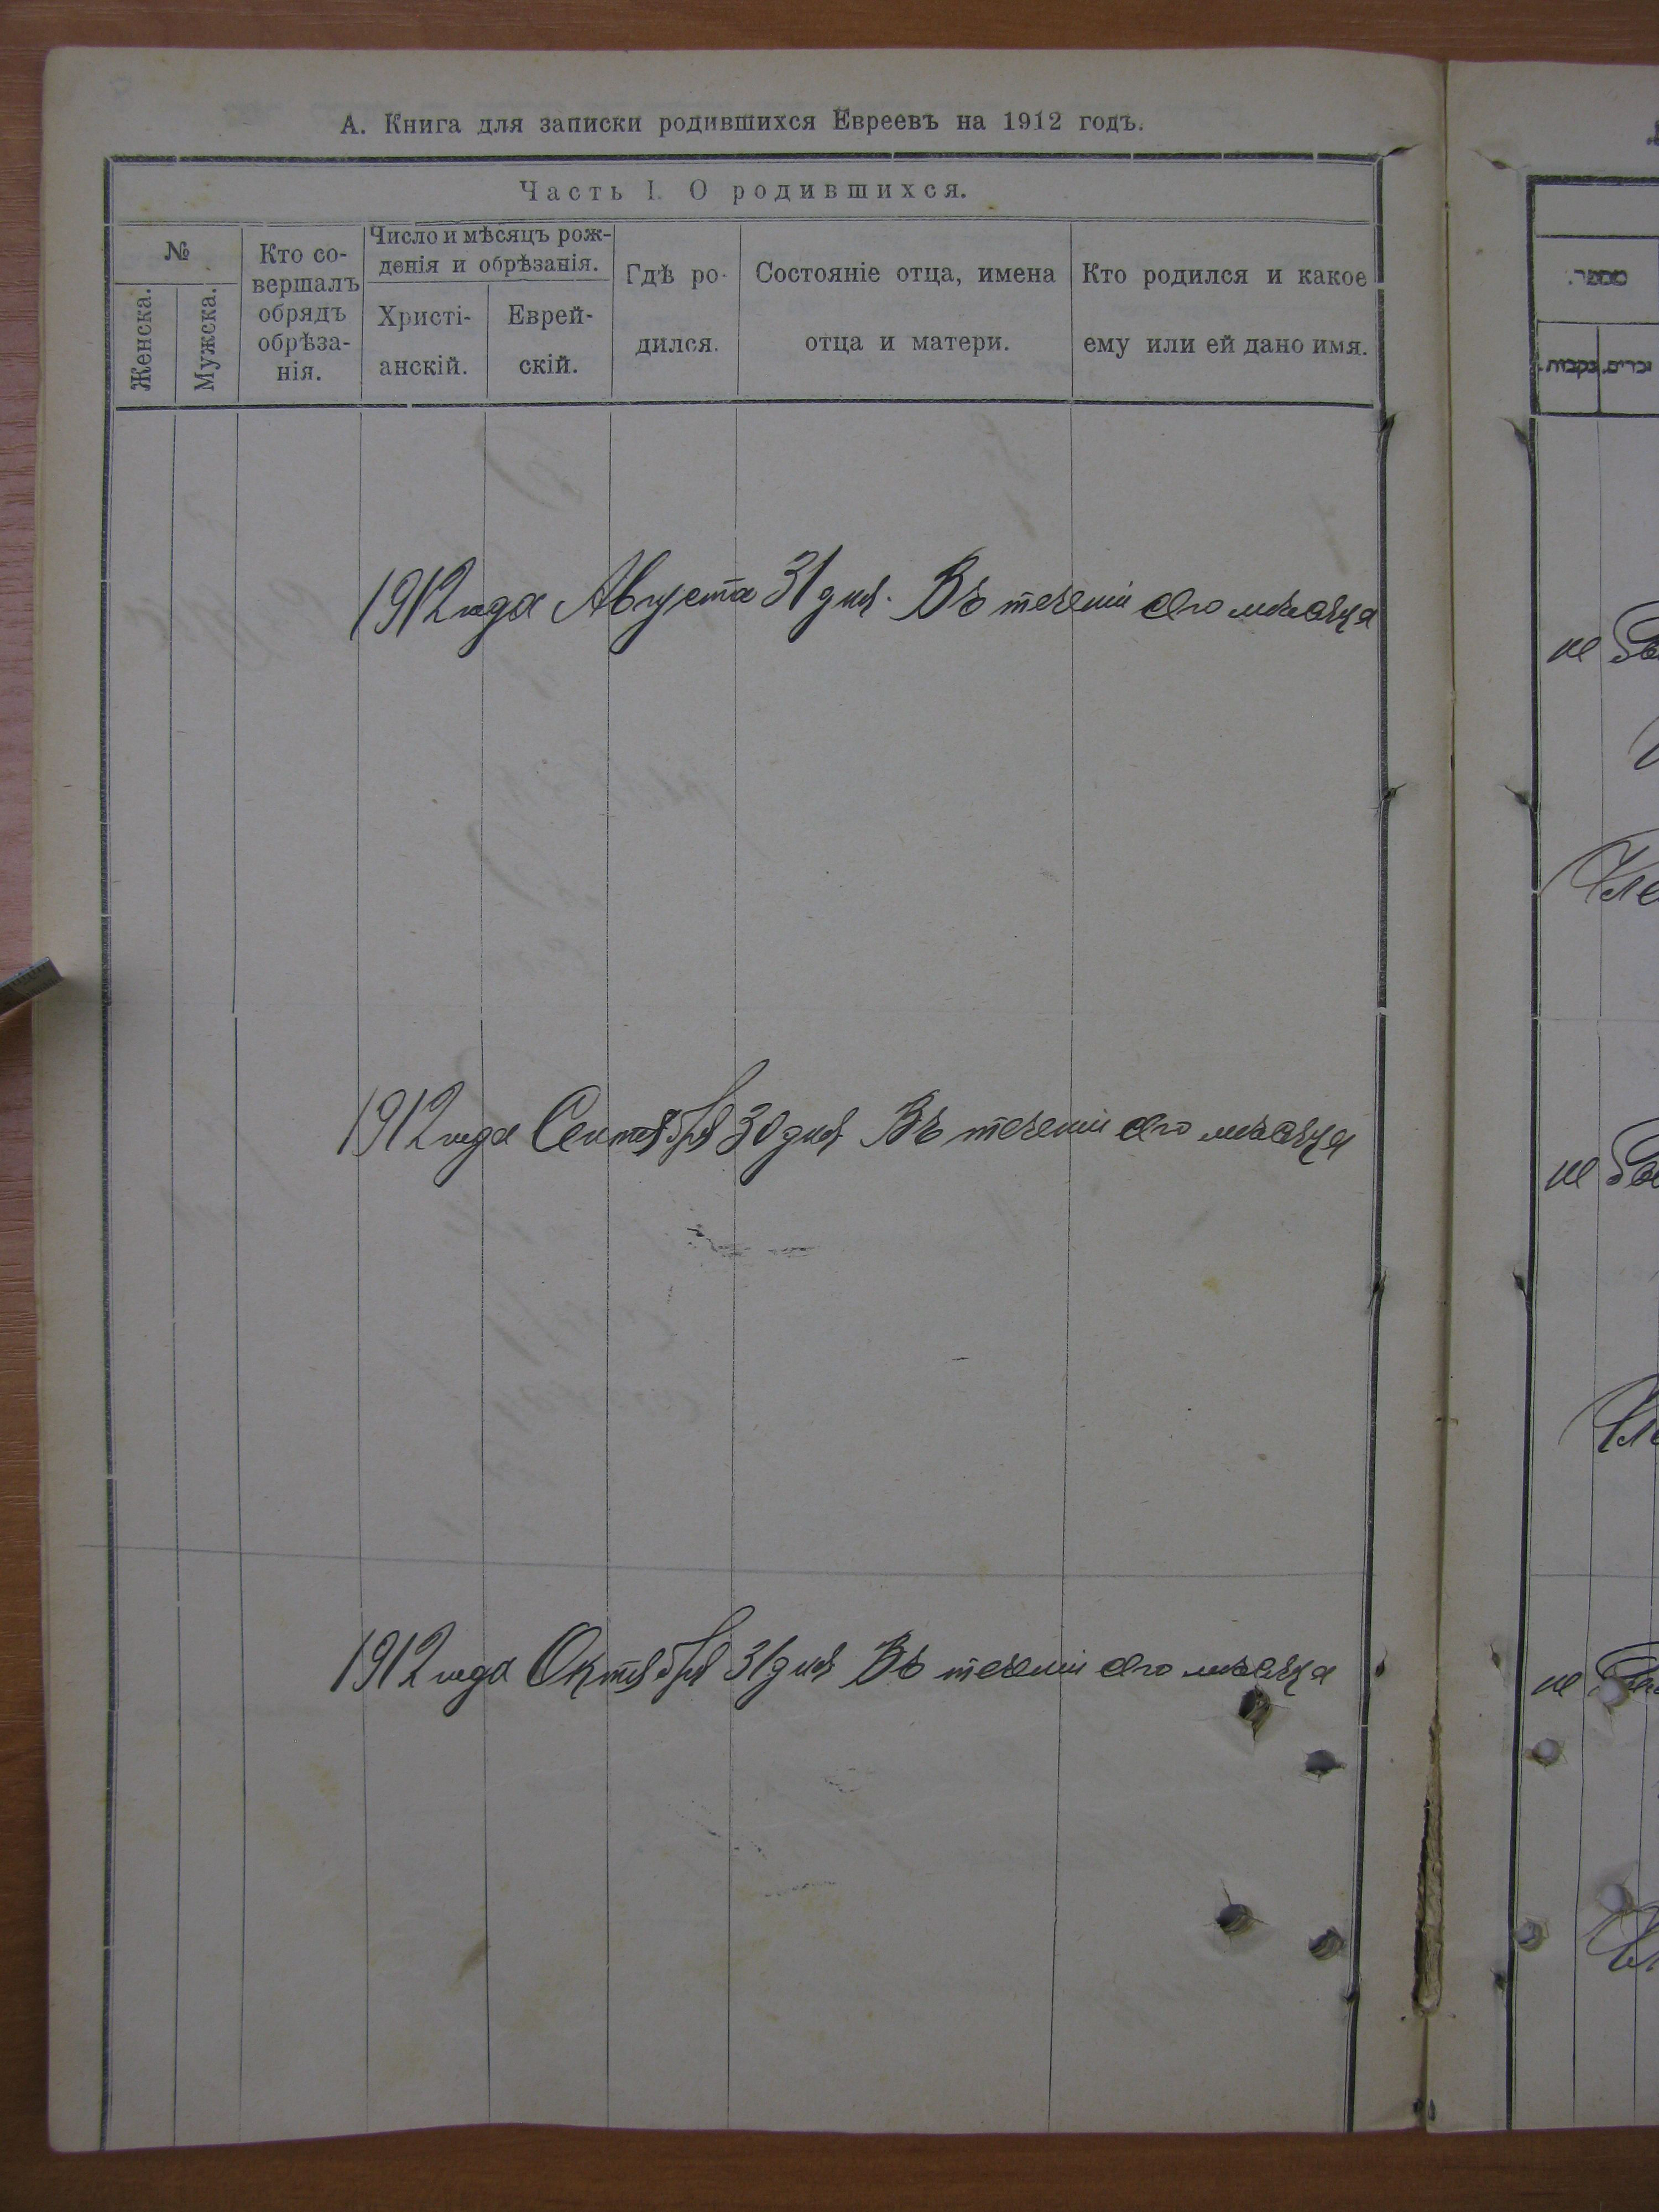 А. Книга для записки родившихся Евреевъ на 1912 годъ.
Часть I. О родившихся.
№
Женска.
Мужска.
Кто со-
вершалъ
обрядъ
обрѣза-
нія.
Число и мѣсяцъ рож-
денія и обрѣзанія.
Христі-
анскій.
Еврей-
скій.
Гдѣ ро-
дился.
Состояніе отца, имена
отца и матери.
Кто родился и какое
ему или ей дано имя.
1912 года Августа 31 дня. Въ теченіи сего мѣсяца
1912 года Сентября 30 дня Въ теченіи сего мѣсяца
1912 года Октября 31 дня Въ теченіи сего мѣсяца
מספר.
זכרים.
נקבות.
не
не
не